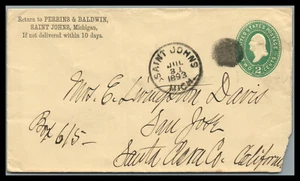 Return to PERKINS & BALDWIN,
SAINT JOHNS, Michigan,
If not delivered within 10 days.
SAINT JOHNS
JUL
31
1893
MICH.
UNITED STATES POSTAGE
TWO 2 CENTS
Mrs. E. Livingston Davis
San Jose
Box 615- Santa Clara Co. California